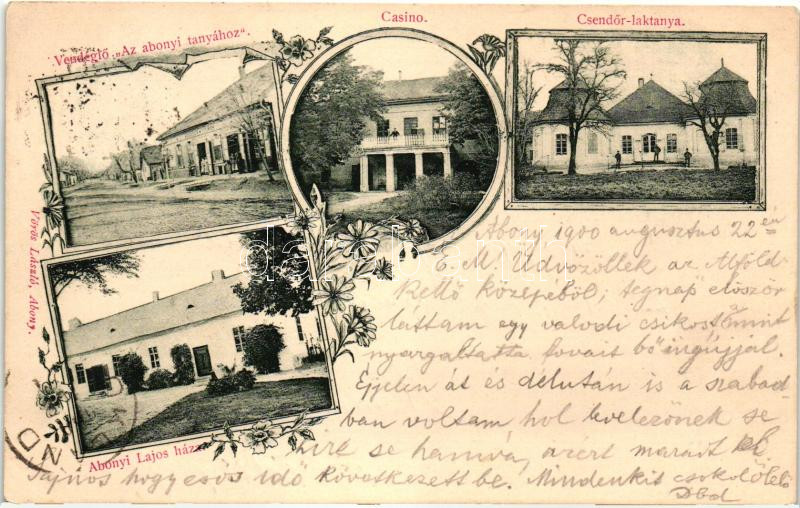 Casino.
Csendőr-laktanya.
Vendéglő „Az abonyi tanyához“.
Vörös László, Abony.
Abonyi Lajos háza.
darabanth
Abony 1900 augusztus 22 én
E. M. Üdvözöllek az Alföld
kellő közepéből, tegnap először
láttam egy valódi csikóst mint
nyargaltatta lovait bő ingujjal.
Éjjelen át és délután is a szabad
ban voltam hol levelezőnek se
híre se hamva, azért maradt el
Sajnos hogy esős idő következett be. Mindenkit csokolő